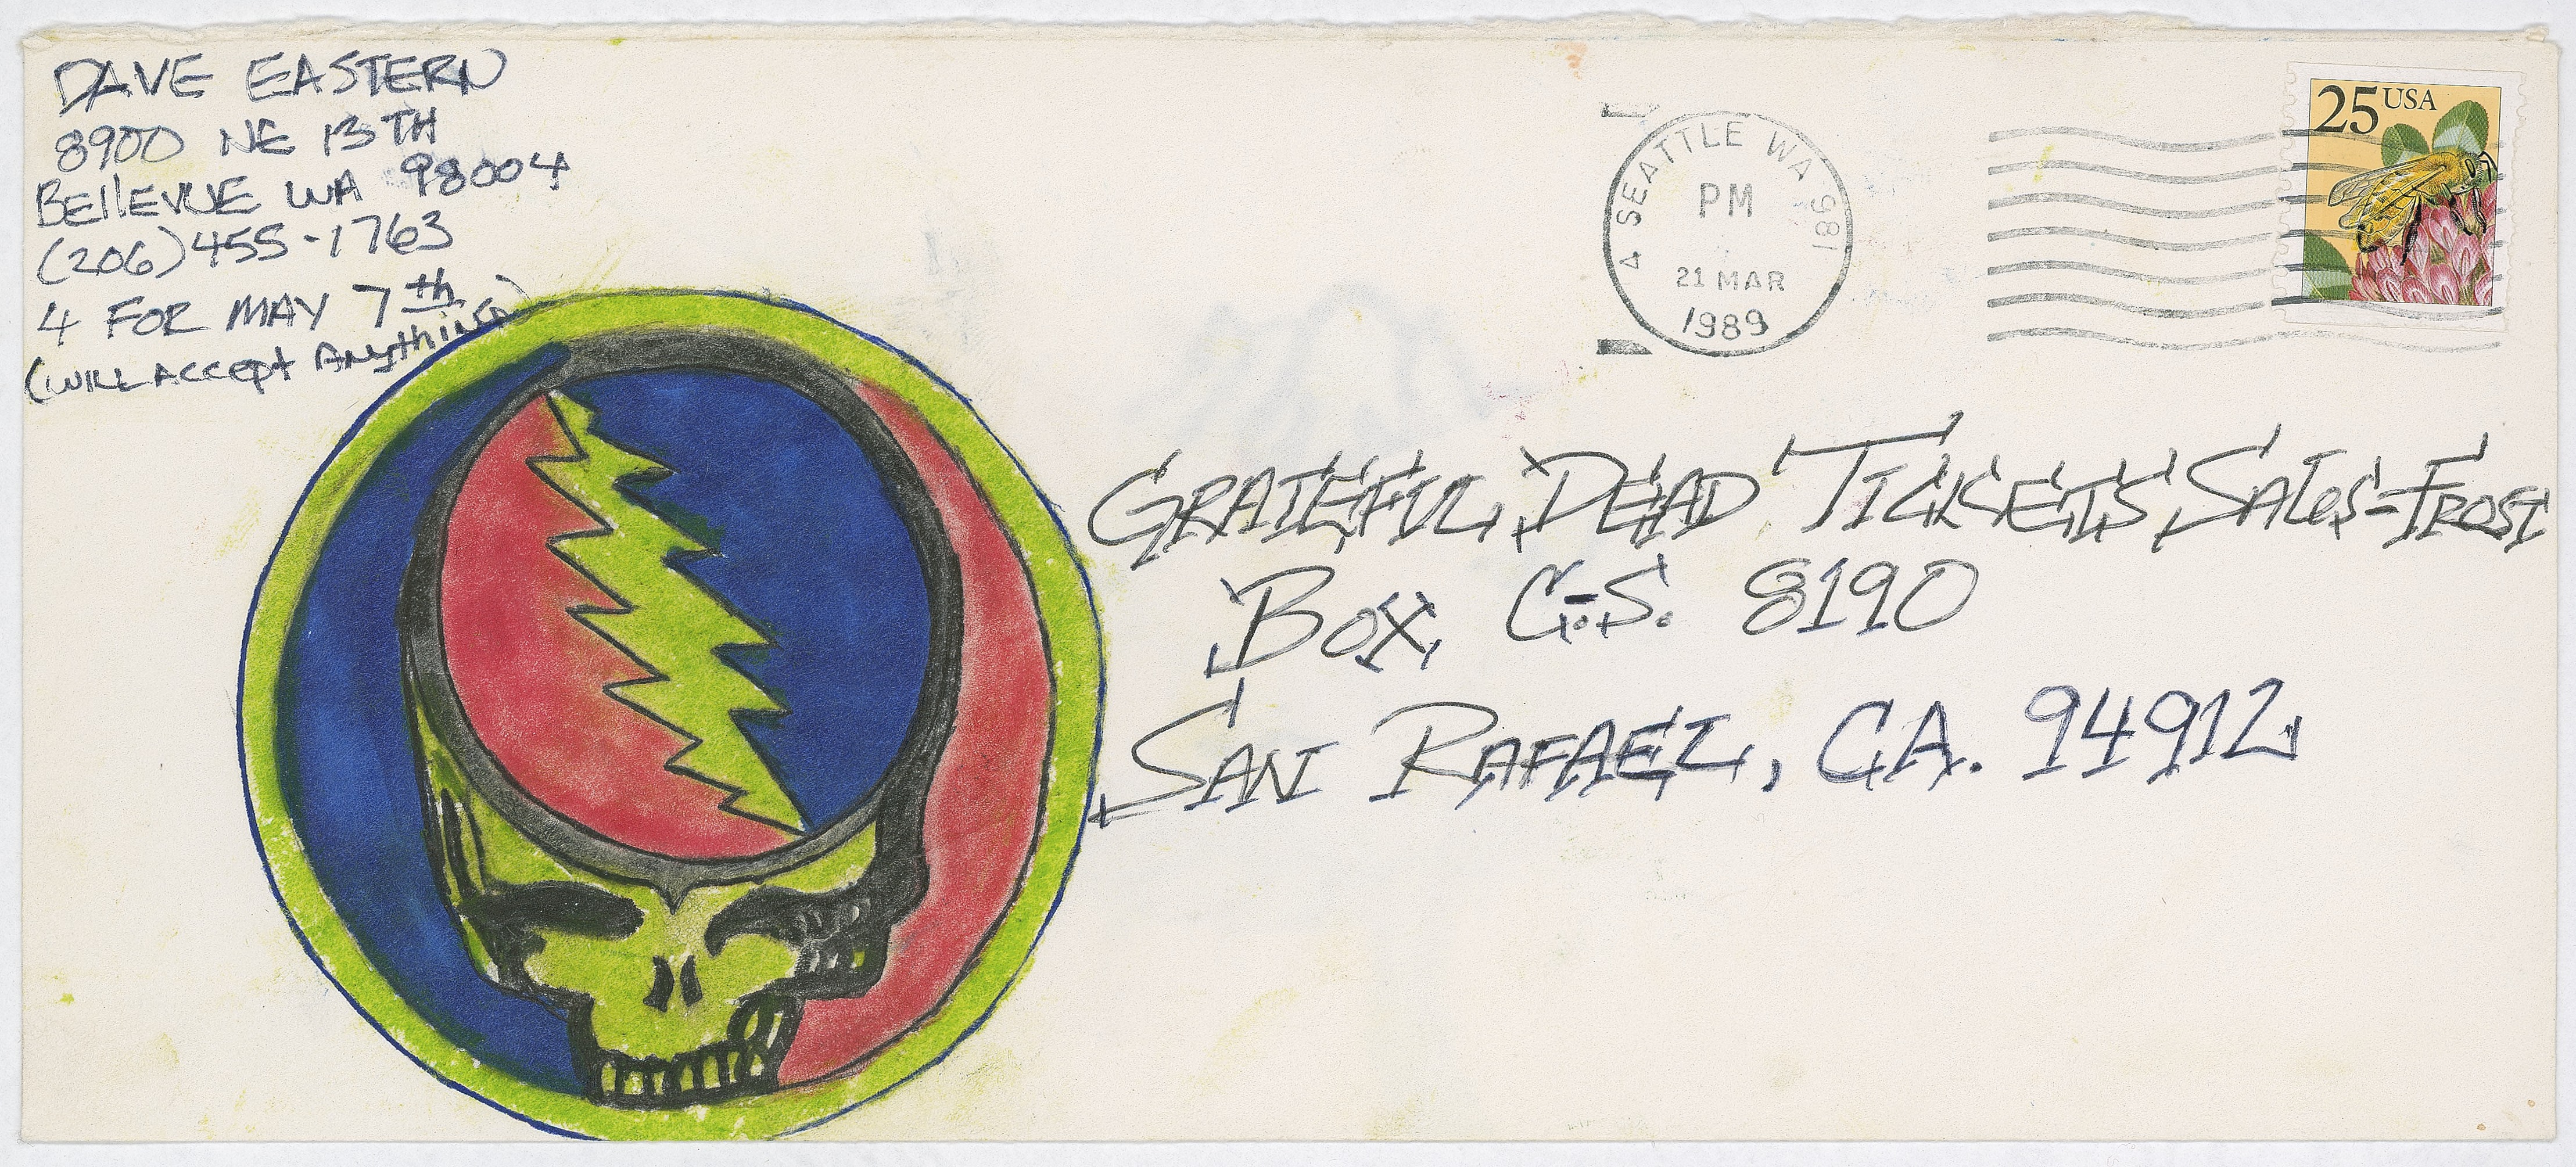 DAVE EASTERN
8900 NE 13TH
BEllEVUE WA 98004
(206)455-1763
4 FOR MAY 7th
(WILL Accept Anything)
4 SEATTLE WA 981
PM
21 MAR
1989
25 USA
GRATEFUL DEAD TICKETS SALES-FROST
BOX C.S. 8190
SAN RAFAEL, CA. 94912